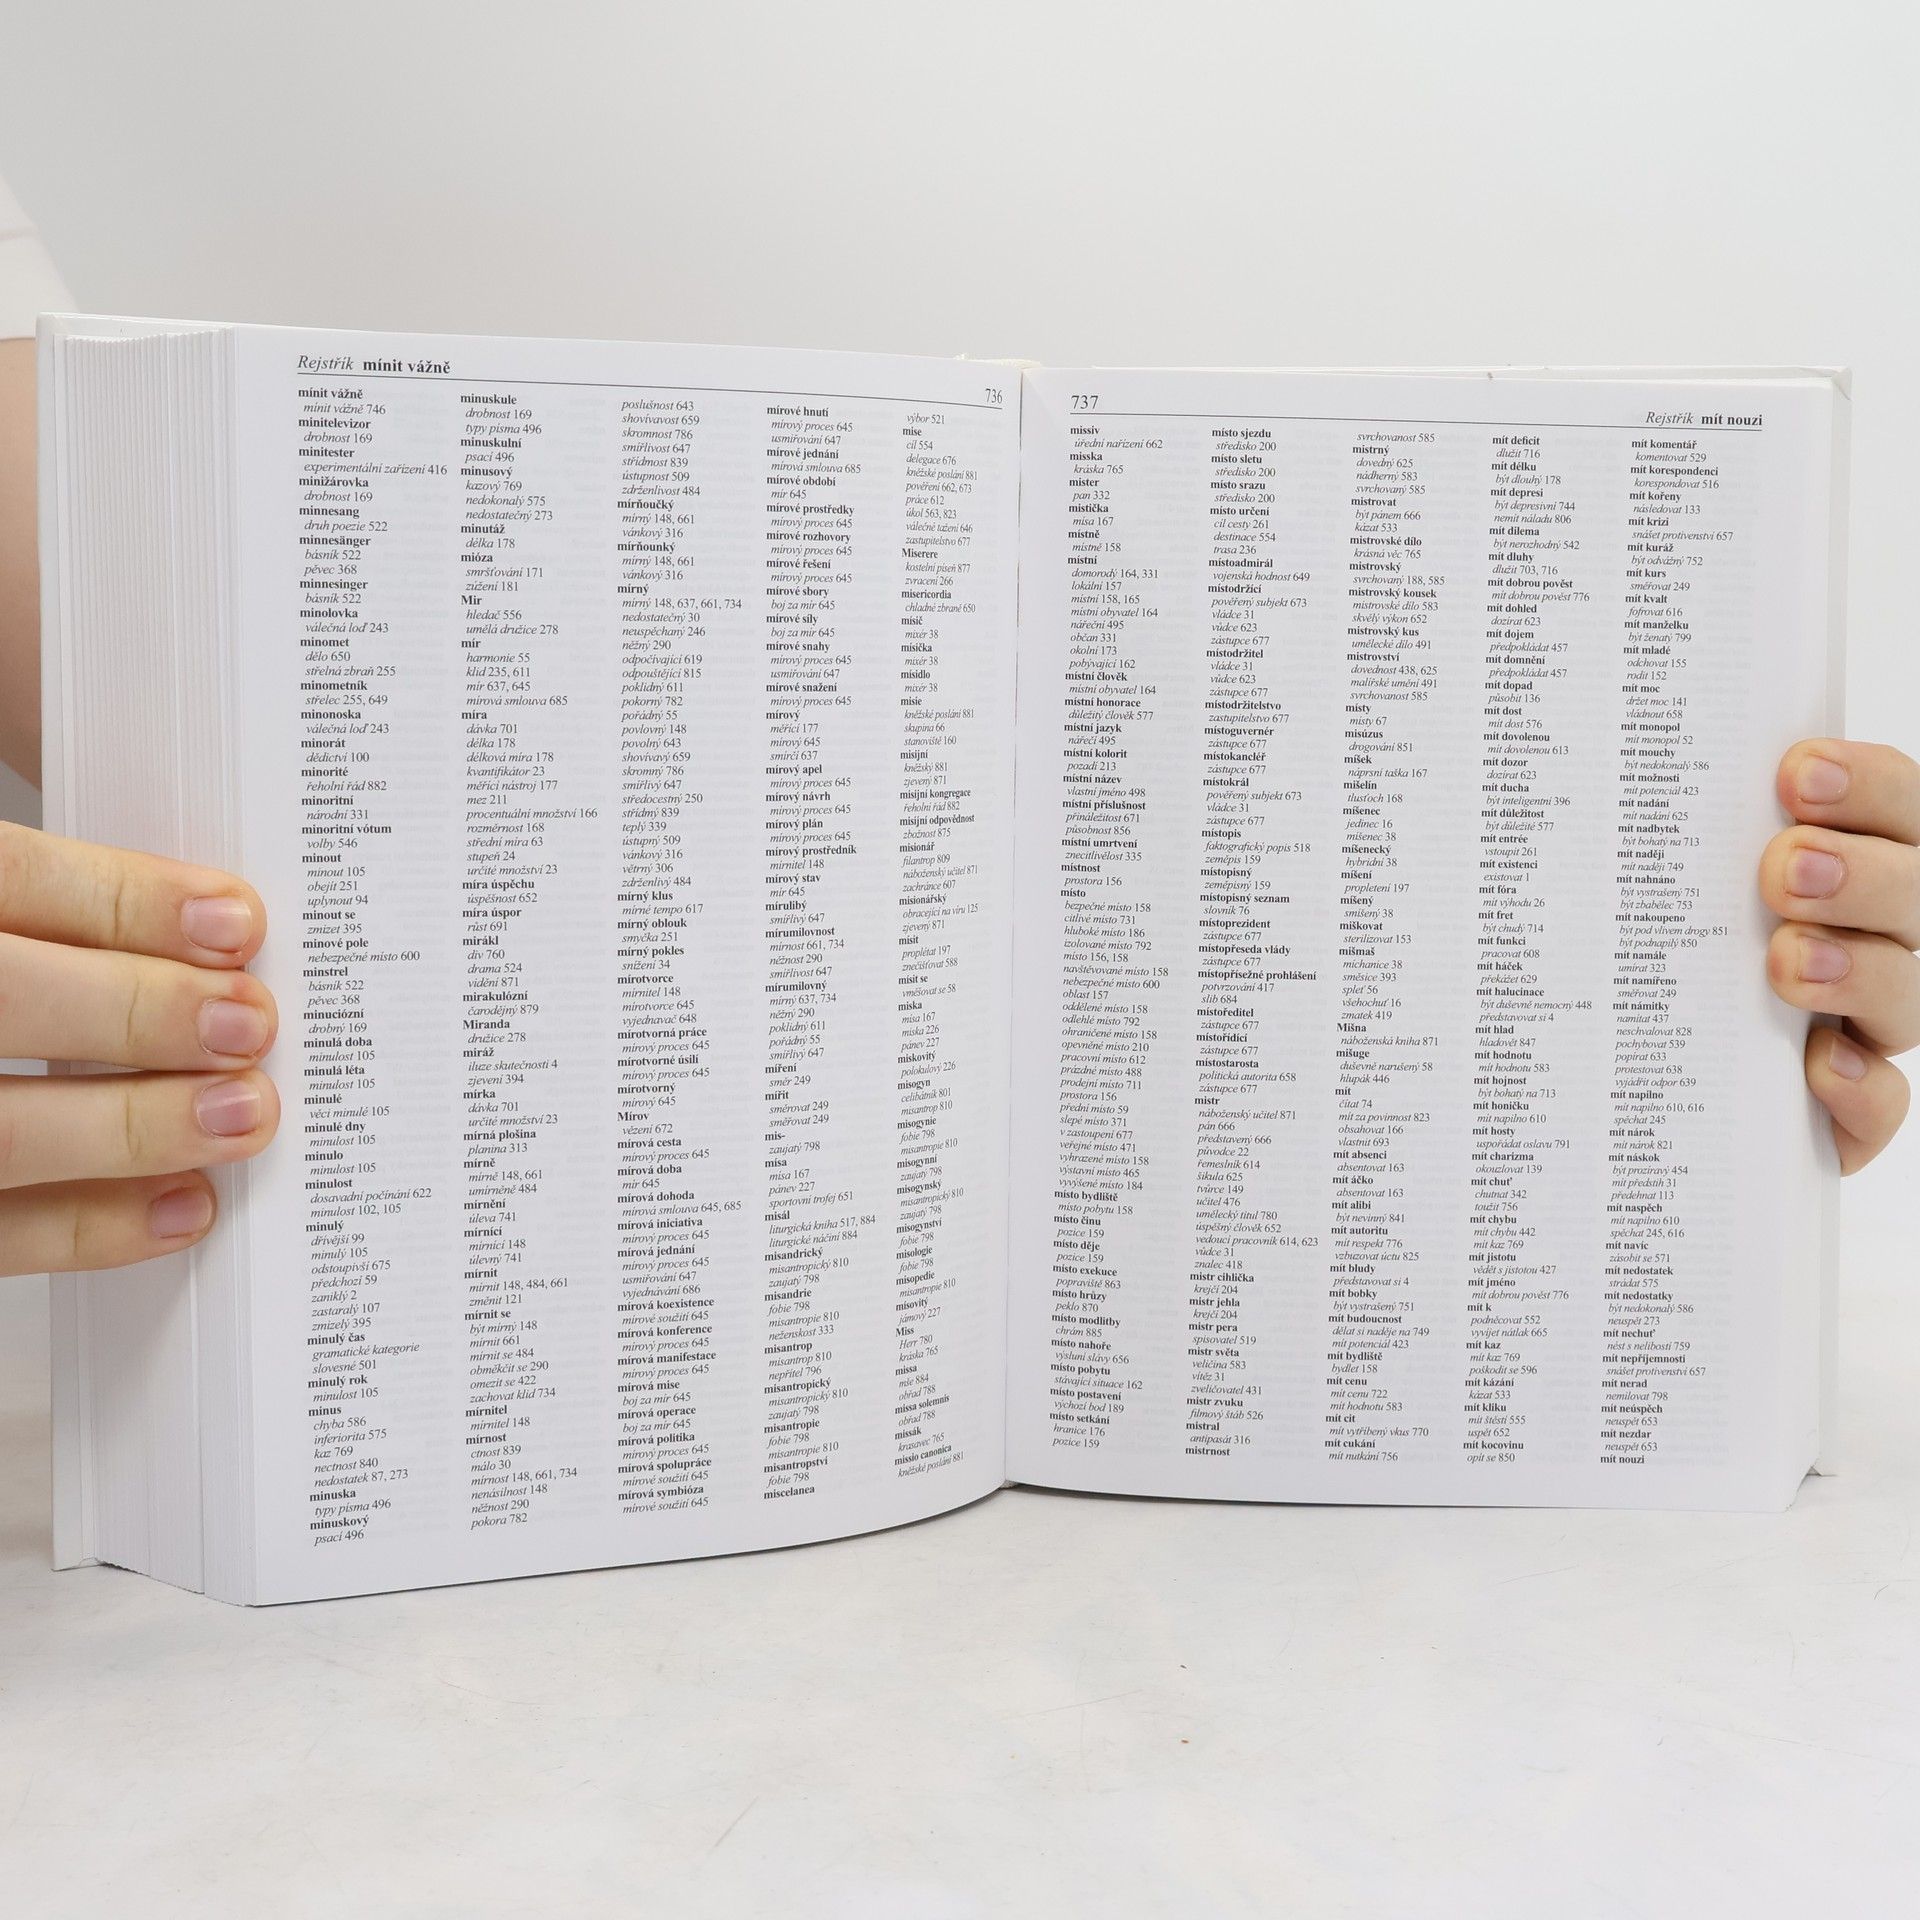 Rejstřík mínit vážně
736
mínit vážně
mínit vážně 746
minitelevizor
drobnost 169
minitester
experimentální zařízení 416
minižárovka
drobnost 169
minnesang
druh poezie 522
minnesänger
básník 522
pěvec 368
minnesinger
básník 522
minolovka
válečná loď 243
minomet
dělo 650
střelná zbraň 255
minometník
střelec 255, 649
minonoska
válečná loď 243
minorát
dědictví 100
minorité
řeholní řád 882
minoritní
národní 331
minoritní vótum
volby 546
minout
minout 105
obejít 251
uplynout 94
minout se
zmizet 395
minové pole
nebezpečné místo 600
minstrel
básník 522
pěvec 368
minuciózní
drobný 169
minulá doba
minulost 105
minulá léta
minulost 105
minulé
věci minulé 105
minulé dny
minulost 105
minulo
minulost 105
minulost
dosavadní počínání 622
minulost 102, 105
minulý
dřívější 99
minulý 105
odstoupivší 675
předchozí 59
zaniklý 2
zastaralý 107
zmizelý 395
minulý čas
gramatické kategorie
slovesné 501
minulý rok
minulost 105
minus
chyba 586
inferiorita 575
kaz 769
nectnost 840
nedostatek 87, 273
minuska
typy písma 496
minuskový
psací 496
minuskule
drobnost 169
typy písma 496
minuskulní
psací 496
minusový
kazový 769
nedokonalý 575
nedostatečný 273
minutáž
délka 178
mióza
smršťování 171
zúžení 181
Mir
hledač 556
umělá družice 278
mír
harmonie 55
klid 235, 611
mír 637, 645
mírová smlouva 685
míra
dávka 701
délka 178
délková míra 178
kvantifikátor 23
měřicí nástroj 177
mez 211
procentuální množství 166
rozměrnost 168
střední míra 63
stupeň 24
určité množství 23
míra úspěchu
úspěšnost 652
míra úspor
růst 691
mirákl
div 760
drama 524
vidění 871
mirakulózní
čarodějný 879
Miranda
družice 278
miráž
iluze skutečnosti 4
zjevení 394
mírka
dávka 701
určité množství 23
mírná plošina
planina 313
mírně
mírně 148, 661
umírněně 484
mírnění
úleva 741
mírnící
mírnící 148
úlevný 741
mírnit
mírnit 148, 484, 661
změnit 121
mírnit se
být mírný 148
mírnit 661
mírnit se 484
obměkčit se 290
omezit se 422
zachovat klid 734
mírnitel
mírnitel 148
mírnost
ctnost 839
málo 30
mírnost 148, 661, 734
nenásilnost 148
něžnost 290
pokora 782
poslušnost 643
shovívavost 659
skromnost 786
smířlivost 647
střídmost 839
ústupnost 509
zdrženlivost 484
mírňoučký
mírný 148, 661
vánkový 316
mírňounký
mírný 148, 661
vánkový 316
mírný
mírný 148, 637, 661, 734
nedostatečný 30
neuspěchaný 246
něžný 290
odpočívající 619
odpouštějící 815
poklidný 611
pokorný 782
pořádný 55
povlovný 148
povolný 643
shovívavý 659
skromný 786
smířlivý 647
středocestný 250
střídmý 839
teplý 339
ústupný 509
vánkový 316
větrný 306
zdrženlivý 484
mírný klus
mírné tempo 617
mírný oblouk
smyčka 251
mírný pokles
snížení 34
mírotvorce
mírnitel 148
mírotvorce 645
vyjednavač 648
mírotvorná práce
mírový proces 645
mírotvorné úsilí
mírový proces 645
mírotvorný
mírový 645
Mírov
vězení 672
mírová cesta
mírový proces 645
mírová doba
mír 645
mírová dohoda
mírová smlouva 645, 685
mírová iniciativa
mírový proces 645
mírová jednání
mírový proces 645
usmiřování 647
vyjednávání 686
mírová koexistence
mírové soužití 645
mírová konference
mírový proces 645
mírová manifestace
mírový proces 645
mírová mise
boj za mír 645
mírová operace
boj za mír 645
mírová politika
mírový proces 645
mírová spolupráce
mírové soužití 645
mírová symbióza
mírové soužití 645
mírové hnutí
mírový proces 645
usmiřování 647
mírové jednání
mírová smlouva 685
mírové období
mír 645
mírové prostředky
mírový proces 645
mírové rozhovory
mírový proces 645
mírové řešení
mírový proces 645
mírové sbory
boj za mír 645
mírové síly
boj za mír 645
mírové snahy
mírový proces 645
usmiřování 647
mírové snažení
mírový proces 645
mírový
měřicí 177
mírový 645
smírčí 637
mírový apel
mírový proces 645
mírový návrh
mírový proces 645
mírový plán
mírový proces 645
mírový prostředník
mírnitel 148
mírový stav
mír 645
mírulibý
smířlivý 647
mírumilovnost
mírnost 661, 734
něžnost 290
smířlivost 647
mírumilovný
mírný 637, 734
něžný 290
poklidný 611
pořádný 55
smířlivý 647
míření
směr 249
mířit
směrovat 249
směřovat 249
mis-
zaujatý 798
mísa
mísa 167
pánev 227
sportovní trofej 651
misál
liturgická kniha 517, 884
liturgické náčiní 884
misandrický
misantropický 810
zaujatý 798
misandrie
fobie 798
misantropie 810
neženskost 333
misantrop
misantrop 810
nepřítel 796
misantropický
misantropický 810
zaujatý 798
misantropie
fobie 798
misantropie 810
misantropství
fobie 798
miscelanea
výbor 521
mise
cíl 554
delegace 676
kněžské poslání 881
pověření 662, 673
práce 612
úkol 563, 823
válečné tažení 646
zastupitelstvo 677
Miserere
kostelní píseň 877
zvracení 266
misericordia
chladné zbraně 650
mísič
mixér 38
mísička
mixér 38
mísidlo
mixér 38
misie
kněžské poslání 881
skupina 66
stanoviště 160
misijní
kněžský 881
zjevený 871
misijní kongregace
řeholní řád 882
misijní odpovědnost
zbožnost 875
misionář
filantrop 809
náboženský učitel 871
zachránce 607
misionářský
obracející na víru 125
zjevený 871
mísit
proplétat 197
znečišťovat 588
mísit se
vměšovat se 58
miska
mísa 167
miska 226
pánev 227
miskovitý
polokulový 226
misogyn
celibátník 801
misantrop 810
misogynie
fobie 798
misantropie 810
misogynní
zaujatý 798
misogynský
misantropický 810
zaujatý 798
misogynství
fobie 798
misologie
fobie 798
misopedie
misantropie 810
mísovitý
jámový 227
Miss
Herr 780
kráska 765
missa
mše 884
obřad 788
missa solemnis
obřad 788
missák
krasavec 765
missio canonica
kněžské poslání 881
737
Rejstřík mít nouzi
missiv
úřední nařízení 662
misska
kráska 765
mister
pan 332
mistička
mísa 167
místně
místně 158
místní
domorodý 164, 331
lokální 157
místní 158, 165
místní obyvatel 164
nářeční 495
občan 331
okolní 173
pobývající 162
místní člověk
místní obyvatel 164
místní honorace
důležitý člověk 577
místní jazyk
nářečí 495
místní kolorit
pozadí 213
místní název
vlastní jméno 498
místní příslušnost
přináležitost 671
působnost 856
místní umrtvení
znecitlivělost 335
místnost
prostora 156
místo
bezpečné místo 158
citlivé místo 731
hluboké místo 186
izolované místo 792
místo 156, 158
navštěvované místo 158
nebezpečné místo 600
oblast 157
oddělené místo 158
odlehlé místo 792
ohraničené místo 158
opevněné místo 210
pracovní místo 612
prázdné místo 488
prodejní místo 711
prostora 156
přední místo 59
slepé místo 371
v zastoupení 677
veřejné místo 471
vyhrazené místo 158
výstavní místo 465
vyvýšené místo 184
místo bydliště
místo pobytu 158
místo činu
pozice 159
místo děje
pozice 159
místo exekuce
popraviště 863
místo hrůzy
peklo 870
místo modlitby
chrám 885
místo nahoře
výsluní slávy 656
místo pobytu
stávající situace 162
místo postavení
výchozí bod 189
místo setkání
hranice 176
pozice 159
místo sjezdu
středisko 200
místo sletu
středisko 200
místo srazu
středisko 200
místo určení
cíl cesty 261
destinace 554
trasa 236
místoadmirál
vojenská hodnost 649
místodržící
pověřený subjekt 673
vládce 31
vůdce 623
zástupce 677
místodržitel
vládce 31
vůdce 623
zástupce 677
místodržitelství
zastupitelstvo 677
místoguvernér
zástupce 677
místokancléř
zástupce 677
místokrál
pověřený subjekt 673
vládce 31
zástupce 677
místopis
faktografický popis 518
zeměpis 159
místopisný
zeměpisný 159
místopisný seznam
slovník 76
místoprezident
zástupce 677
místopředseda vlády
zástupce 677
místopřísežné prohlášení
potvrzování 417
slib 684
místoředitel
zástupce 677
místořídící
zástupce 677
místostarosta
politická autorita 658
zástupce 677
mistr
náboženský učitel 871
pán 666
představený 666
původce 22
řemeslník 614
šikula 625
tvůrce 149
učitel 476
umělecký titul 780
úspěšný člověk 652
vedoucí pracovník 614, 623
vůdce 31
znalec 418
mistr cihlička
krejčí 204
mistr jehla
krejčí 204
mistr pera
spisovatel 519
mistr světa
veličina 583
vítěz 31
zveličovatel 431
mistr zvuku
filmový štáb 526
mistral
antipasát 316
mistrnost
svrchovanost 585
mistrný
dovedný 625
nádherný 583
svrchovaný 585
mistrovat
být pánem 666
kázat 533
mistrovské dílo
krásná věc 765
mistrovský
svrchovaný 188, 585
mistrovský kousek
mistrovské dílo 583
skvělý výkon 652
mistrovský kus
umělecké dílo 491
mistrovství
dovednost 438, 625
malířské umění 491
svrchovanost 585
místy
místy 67
misúzus
drogování 851
míšek
náprsní taška 167
mišelín
tlusťoch 168
míšenec
jedinec 16
míšenec 38
míšenecký
hybridní 38
míšení
propletení 197
míšený
smíšený 38
miškovat
sterilizovat 153
mišmaš
míchanice 38
směsice 393
spleť 56
všehochuť 16
zmatek 419
Mišna
náboženská kniha 871
mišuge
duševně narušený 58
hlupák 446
mít
čítat 74
mít za povinnost 823
obsahovat 166
vlastnit 693
mít absenci
absentovat 163
mít áčko
absentovat 163
mít alibi
být nevinný 841
mít autoritu
mít respekt 776
vzbuzovat úctu 825
mít bludy
představovat si 4
mít bobky
být vystrašený 751
mít budoucnost
dělat si naděje na 749
mít potenciál 423
mít bydliště
bydlet 158
mít cenu
mít cenu 722
mít hodnotu 583
mít cit
mít vytříbený vkus 770
mít cukání
mít nutkání 756
mít deficit
dlužit 716
mít délku
být dlouhý 178
mít depresi
být depresivní 744
nemít náladu 806
mít dilema
být nerozhodný 542
mít dluhy
dlužit 703, 716
mít dobrou pověst
mít dobrou pověst 776
mít dohled
dozírat 623
mít dojem
předpokládat 457
mít domnění
předpokládat 457
mít dopad
působit 136
mít dost
mít dost 576
mít dovolenou
mít dovolenou 613
mít dozor
dozírat 623
mít ducha
být inteligentní 396
mít důležitost
být důležité 577
mít entrée
vstoupit 261
mít existenci
existovat 1
mít fóra
mít výhodu 26
mít fret
být chudý 714
mít funkci
pracovat 608
mít háček
překážet 629
mít halucinace
být duševně nemocný 448
představovat si 4
mít hlad
hladovět 847
mít hodnotu
mít hodnotu 583
mít hojnost
být bohatý na 713
mít honičku
mít napilno 610
mít hosty
uspořádat oslavu 791
mít charizma
okouzlovat 139
mít chuť
chutnat 342
toužit 756
mít chybu
mít chybu 442
mít kaz 769
mít jistotu
vědět s jistotou 427
mít jméno
mít dobrou pověst 776
mít k
podněcovat 552
vyvíjet nátlak 665
mít kaz
mít kaz 769
poškodit se 596
mít kázání
kázat 533
mít kliku
mít štěstí 555
uspět 652
mít kocovinu
opít se 850
mít komentář
komentovat 529
mít korespondenci
korespondovat 516
mít kořeny
následovat 133
mít krizi
snášet protivenství 657
mít kuráž
být odvážný 752
mít kurs
směřovat 249
mít kvalt
fofrovat 616
mít manželku
být ženatý 799
mít mladé
odchovat 155
rodit 152
mít moc
držet moc 141
vládnout 658
mít monopol
mít monopol 52
mít mouchy
být nedokonalý 586
mít možnosti
mít potenciál 423
mít nadání
mít nadání 625
mít nadbytek
být bohatý na 713
mít naději
mít naději 749
mít nahnáno
být vystrašený 751
být zbabělec 753
mít nakoupeno
být pod vlivem drogy 851
být podnapilý 850
mít namále
umírat 323
mít namířeno
směřovat 249
mít námitky
namítat 437
neschvalovat 828
pochybovat 539
popírat 633
protestovat 638
vyjádřit odpor 639
mít napilno
mít napilno 610, 616
spěchat 245
mít nárok
mít nárok 821
mít náskok
být prozíravý 454
mít předstih 31
předehnat 113
mít naspěch
mít napilno 610
spěchat 245, 616
mít navíc
zásobit se 571
mít nedostatek
strádat 575
mít nedostatky
být nedokonalý 586
neuspět 273
mít nechuť
nést s nelibostí 759
mít nepříjemnosti
snášet protivenství 657
mít nerad
nemilovat 798
mít neúspěch
neuspět 653
mít nezdar
neuspět 653
mít nouzi